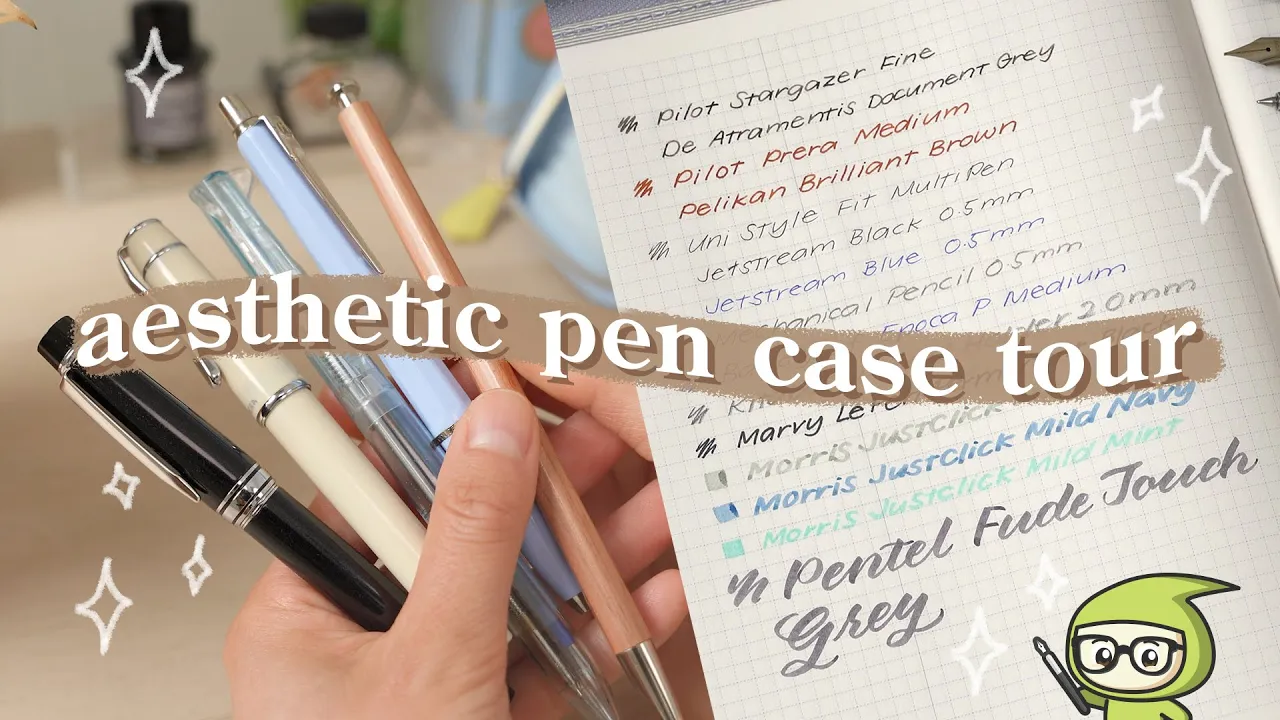 Pilot Stargazer Fine
De Atramentis Document Grey
Pilot Prera Medium
Pelikan Brilliant Brown
Uni Style Fit Multi Pen
Jetstream Black 0.5mm
Jetstream Blue 0.5mm
Mechanical Pencil 0.5mm
Epoca P Medium
2.0mm
aesthetic pen case tour
Marvy
Morris JustClick
Morris JustClick Mild Navy
Morris JustClick Mild Mint
Pentel Fude Touch
Grey